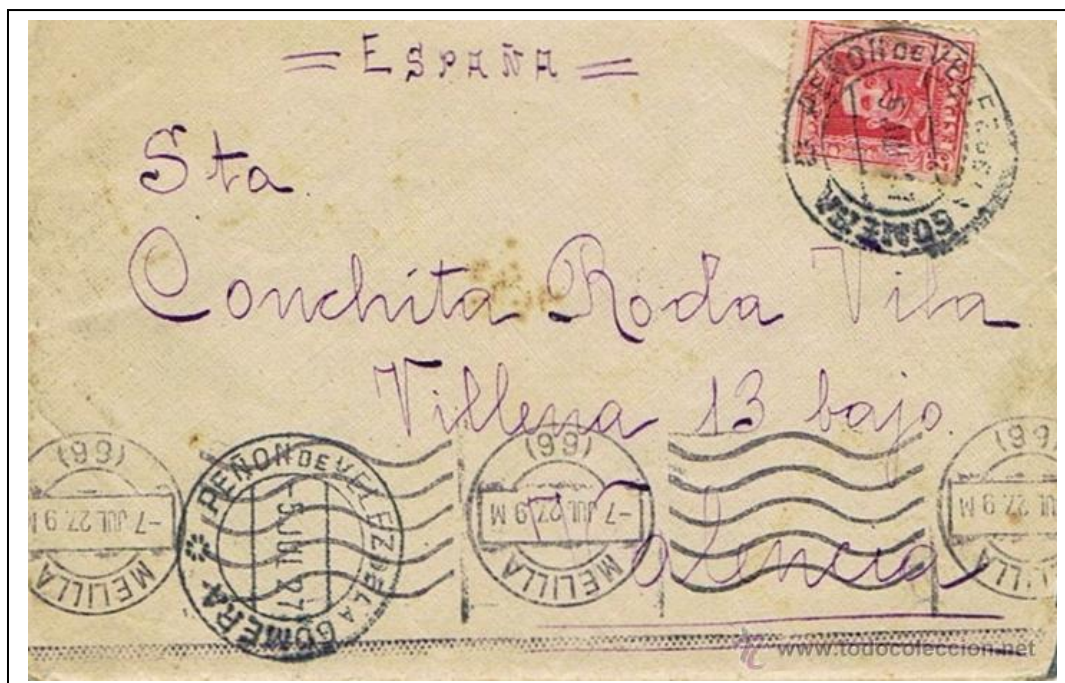 = ESPAÑA =
PEÑON DE VELEZ
GOMERA
Sta
Conchita Roda Vila
Villena 13 bajo.
Valencia
(66)
-7 JUL 27. 9 M
MELILLA
PEÑON DE VELEZ DE LA GOMERA
-5 JUL 27
(66)
-7 JUL 27. 9 M
MELILLA
(66)
-7 JUL
MELILLA
www.todocoleccion.net